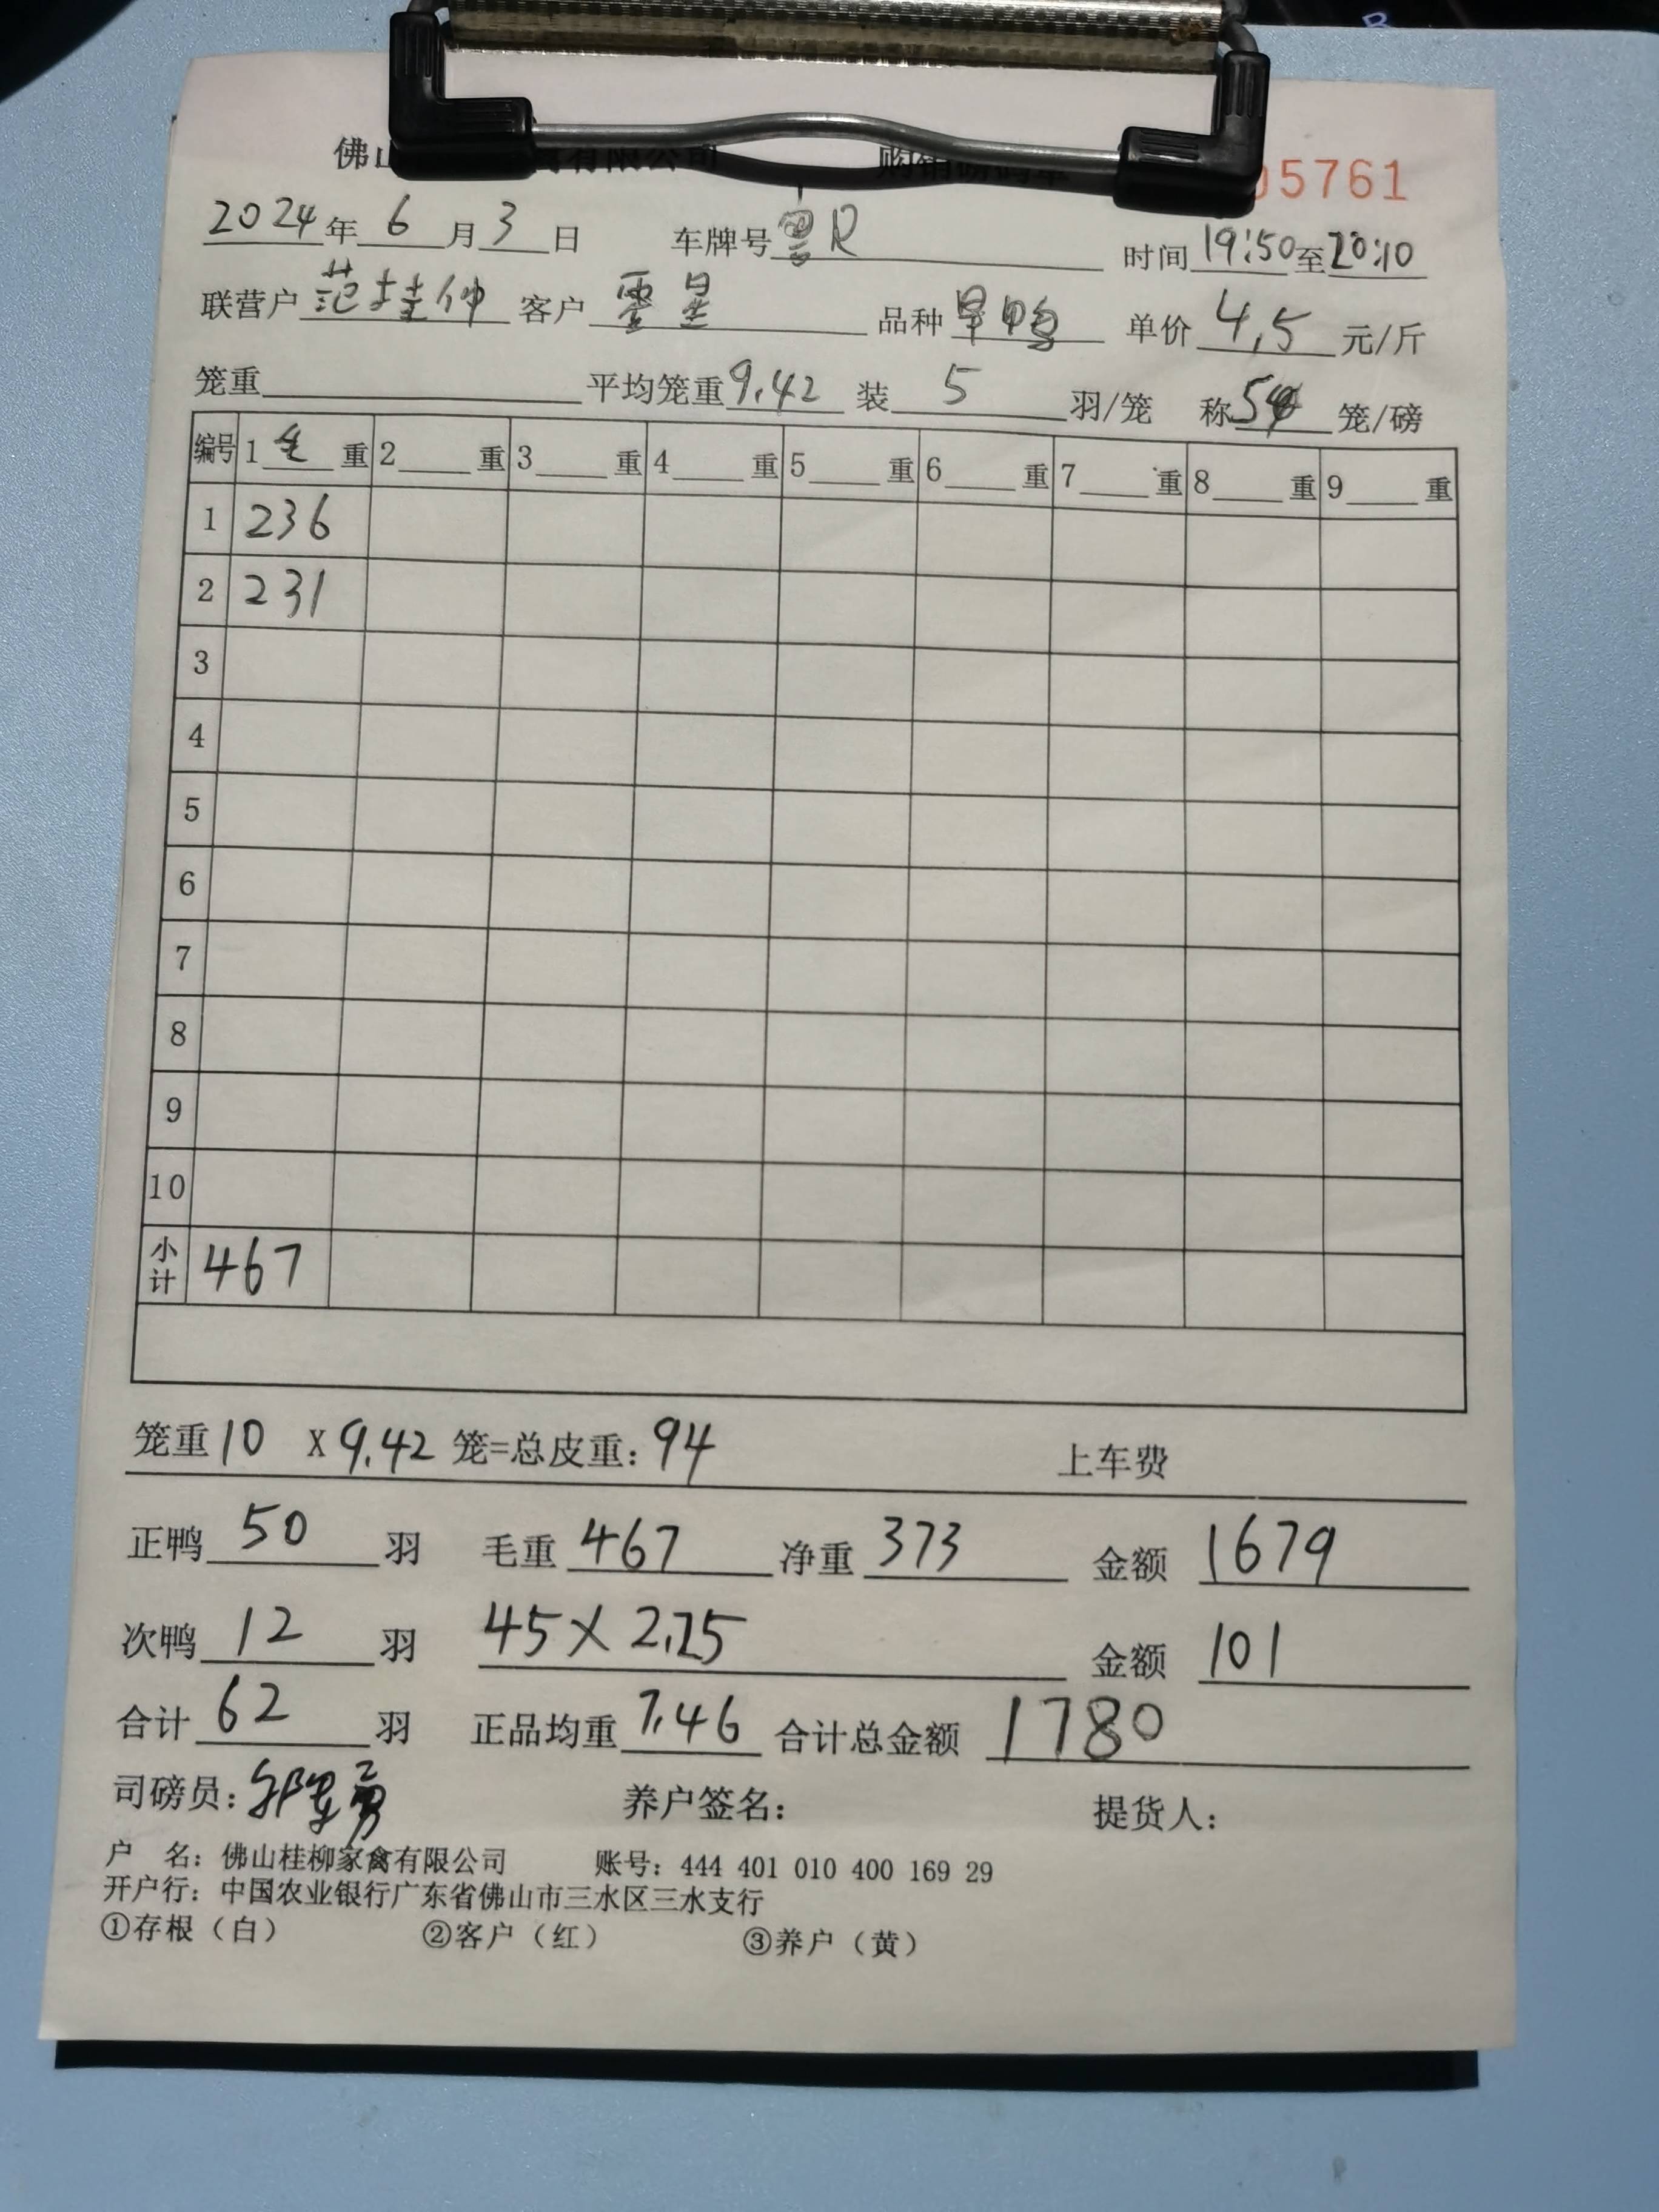 佛山 禽有限公司 购销磅码单 05761
2024年 6 月 3 日 车牌号 粤R 时间 19:50 至 20:10
联营户 范桂仲 客户 零星 品种 旱鸭 单价 4.5 元/斤
笼重 平均笼重 9.42 装 5 羽/笼 称 5 笼/磅
编号 1 毛 重 2 重 3 重 4 重 5 重 6 重 7 重 8 重 9 重
1 236
2 231
3
4
5
6
7
8
9
10
小计 467
笼重 10 X 9.42 笼=总皮重: 94 上车费
正鸭 50 羽 毛重 467 净重 373 金额 1679
次鸭 12 羽 45 × 2.25 金额 101
合计 62 羽 正品均重 7.46 合计总金额 1780
司磅员: 养户签名: 提货人:
户 名: 佛山桂柳家禽有限公司 账号: 444 401 010 400 169 29
开户行: 中国农业银行广东省佛山市三水区三水支行
①存根（白） ②客户（红） ③养户（黄）